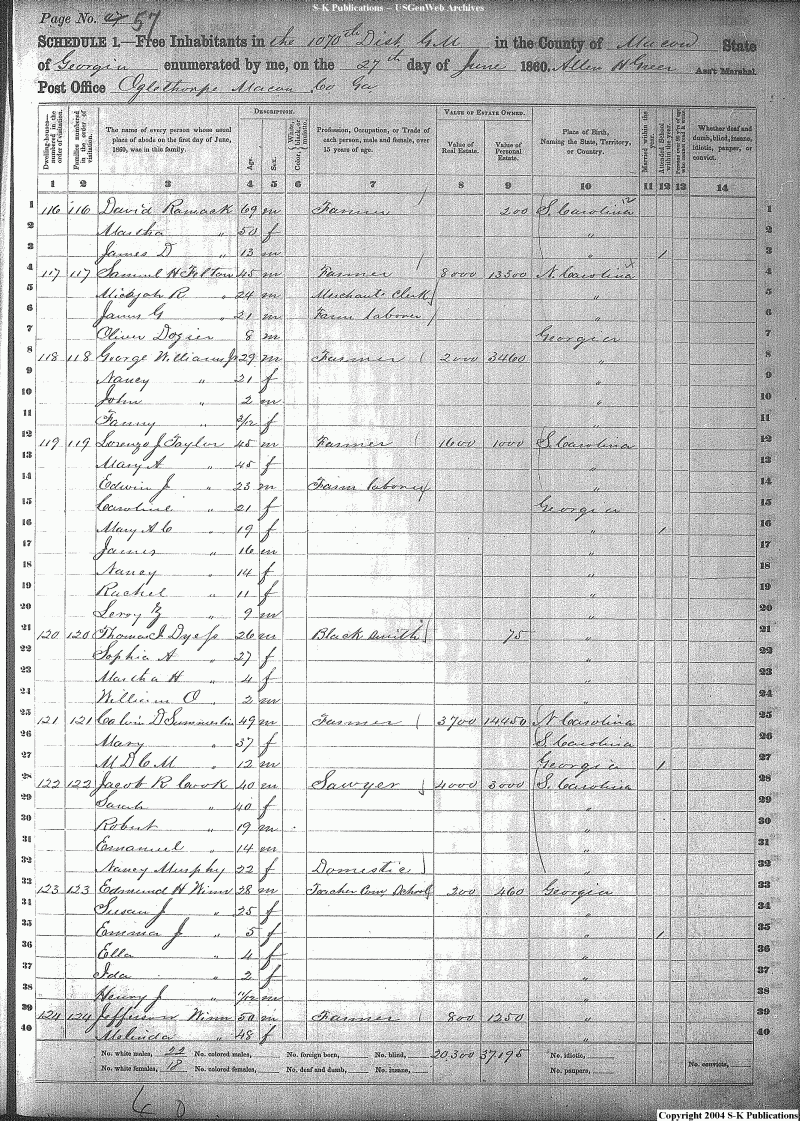 S-K Publications – USGenWeb Archives
Page No. 47 57
SCHEDULE 1.—Free Inhabitants in the 1070th Dist G.M in the County of Macon State
of Georgia enumerated by me, on the 27th day of June 1860. Allen H Greer Ass't Marshal.
Post Office Oglethorpe Macon Co Ga
Dwelling-houses—numbered in the order of visitation.
Families numbered in the order of visitation.
The name of every person whose usual place of abode on the first day of June, 1860, was in this family.
DESCRIPTION.
Age.
Sex.
Color, White, black, or mulatto.
Profession, Occupation, or Trade of each person, male and female, over 15 years of age.
VALUE OF ESTATE OWNED.
Value of Real Estate.
Value of Personal Estate.
Place of Birth, Naming the State, Territory, or Country.
Married within the year.
Attended School within the year.
Whether deaf and dumb, blind, insane, idiotic, pauper, or convict.
1 2 3 4 5 6 7 8 9 10 11 12 13 14
1 116 116 David Ramack 69 m Farmer 200 S. Carolina 1
2 Martha " 50 f " 2
3 James D " 13 m " 1 3
4 117 117 Samuel H Felton 45 m Farmer 8000 13300 N. Carolina 4
5 Micajah R " 24 m Merchants Clerk " 5
6 James G " 21 m Farm laborer " 6
7 Oliver Dozier 8 m Georgia 7
8 118 118 George Williams Jr 29 m Farmer 2000 3460 " 8
9 Nancy " 21 f " 9
10 John " 2 m " 10
11 Fanny " 3/12 f " 11
12 119 119 Lorenzo J Taylor 45 m Farmer 1600 1000 S. Carolina 12
13 Mary A " 45 f " 13
14 Edwin J " 23 m Farm laborer " 14
15 Caroline " 21 f Georgia 15
16 Mary A C " 19 f " 1 16
17 James " 16 m " 17
18 Nancy " 14 f " 18
19 Rachel " 11 f " 19
20 Leroy " 9 m " 20
21 120 120 Thomas J Dyess 26 m Black smith 75 " 21
22 Sophia A " 27 f " 22
23 Martha H " 4 f " 23
24 William O " 2 m " 24
25 121 121 Calvin D Summerlin 49 m Farmer 3700 14450 N Carolina 25
26 Mary " 37 f S. Carolina 26
27 M D C M " 12 m Georgia 1 27
28 122 122 Jacob R Cook 40 m Sawyer 4000 3000 S. Carolina 28
29 Sarah " 40 f " 29
30 Robert " 19 m " 30
31 Emanuel " 14 m " 31
32 Nancy Murphy 22 f Domestic " 32
33 123 123 Edmund H Winn 28 m Teacher Com, School 200 460 Georgia 33
34 Susan J " 25 f " 34
35 Emma J " 5 f " 1 35
36 Ella " 4 f " 36
37 Ida " 2 f " 37
38 Henry J " 11/12 m " 38
39 124 124 Jefferson Winn 50 m Farmer 800 1250 " 39
40 Melinda " 48 f " 40
No. white males, 22 No. colored males, No. foreign born, No. blind, 20300 37,195 No. idiotic,
No. white females, 18 No. colored females, No. deaf and dumb, No. insane, No. paupers, No. convicts,
Copyright 2004 S-K Publications